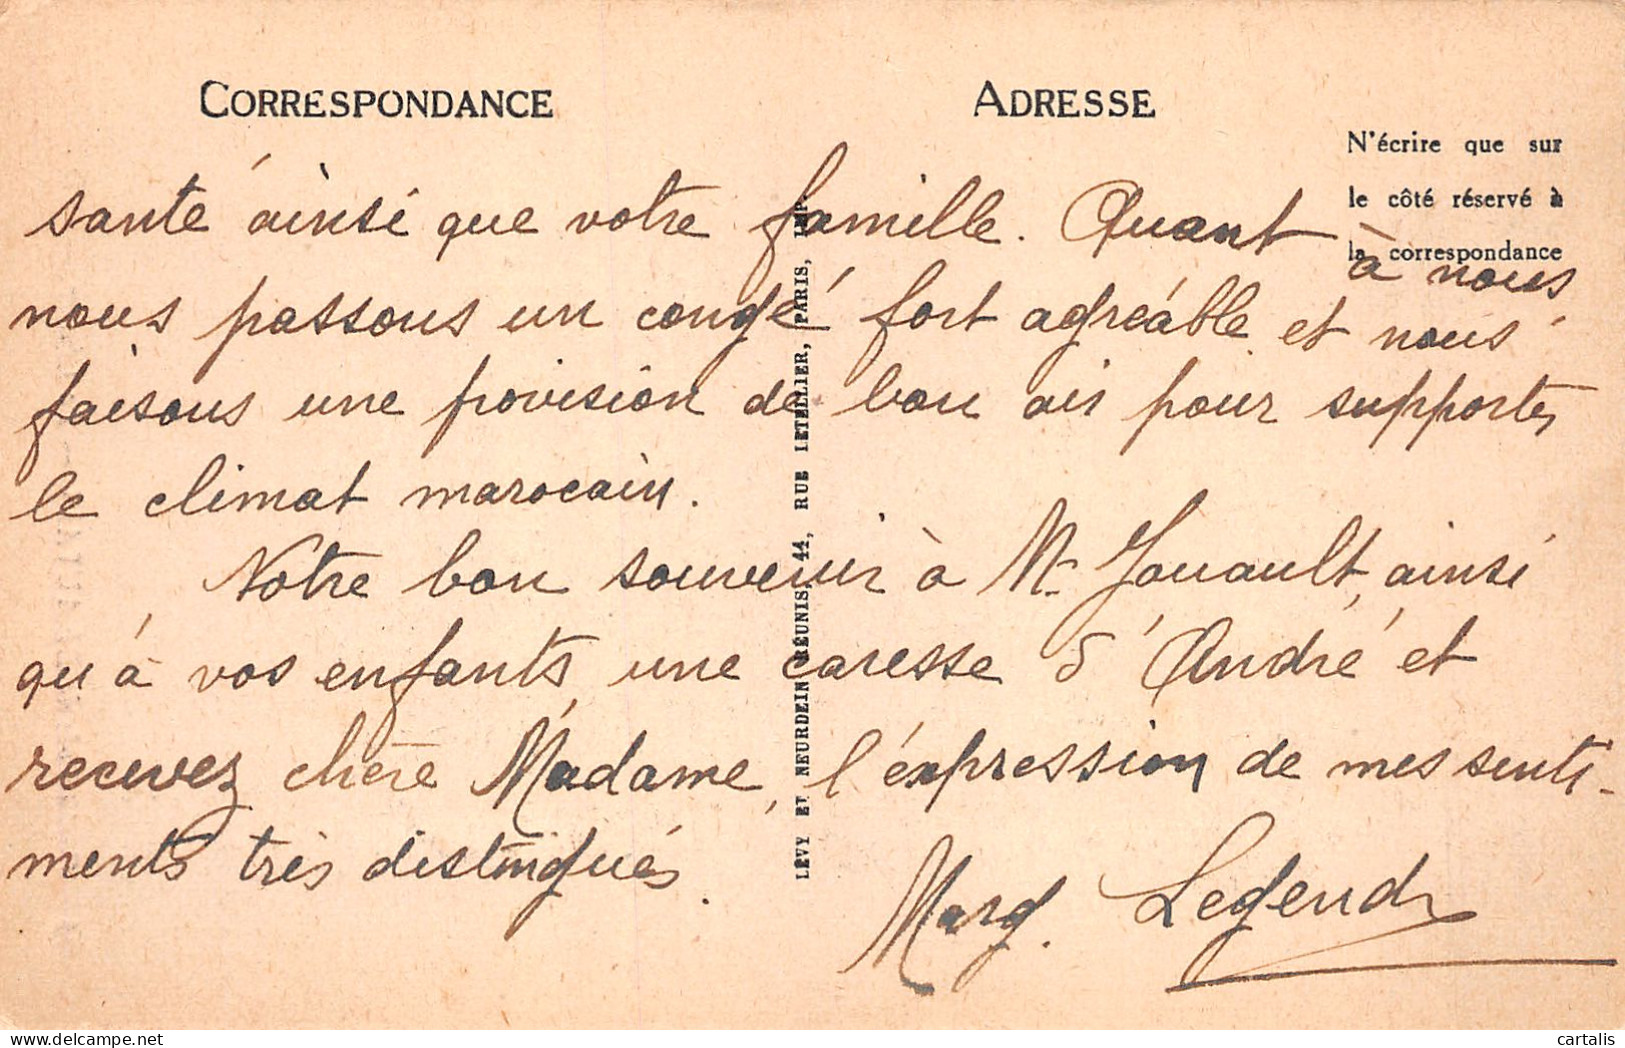 CORRESPONDANCE
ADRESSE
N'écrire que sur
le côté réservé à
la correspondance
santé ainsi que votre famille. Quant
à nous
nous passons un congé fort agréable et nous
faisons une provision de bon air pour supporter
le climat marocain.
Notre bon souvenir à Mr Jouault, ainsi
qu'à vos enfants, une caresse d'André et
recevez chère Madame, l'expression de mes senti-
ments très distingués.
Marg. Legendr
LÉVY ET NEURDEIN RÉUNIS, 44, RUE LETELLIER, PARIS, IMP.
cartalis